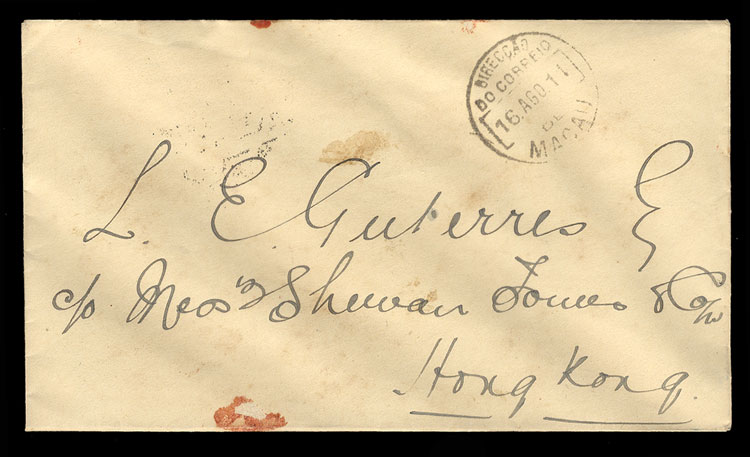 DIRECÇÃO
DO CORREIO
16.AGO.11
DE
MACAU
L. E. Guterres E
c/o Mess Shewan Tomes & Co
Hong Kong.